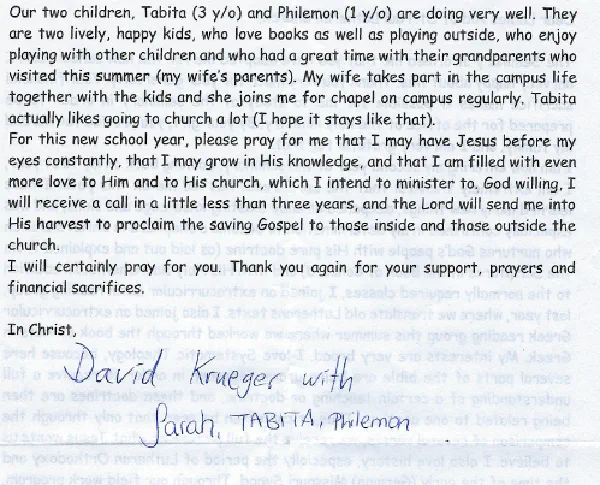 Our two children, Tabita (3 y/o) and Philemon (1 y/o) are doing very well. They
are two lively, happy kids, who love books as well as playing outside, who enjoy
playing with other children and who had a great time with their grandparents who
visited this summer (my wife's parents). My wife takes part in the campus life
together with the kids and she joins me for chapel on campus regularly. Tabita
actually likes going to church a lot (I hope it stays like that).
For this new school year, please pray for me that I may have Jesus before my
eyes constantly, that I may grow in His knowledge, and that I am filled with even
more love to Him and to His church, which I intend to minister to. God willing, I
will receive a call in a little less than three years, and the Lord will send me into
His harvest to proclaim the saving Gospel to those inside and those outside the
church.
I will certainly pray for you. Thank you again for your support, prayers and
financial sacrifices.
In Christ,
David Krueger with
Sarah, TABITA, Philemon